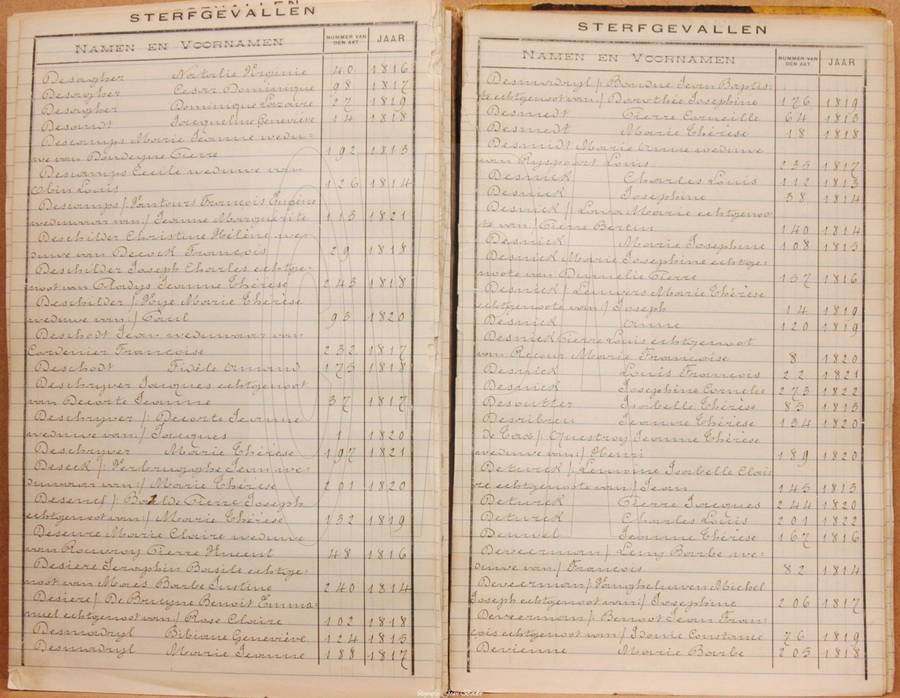 STERFGEVALLEN
NAMEN EN VOORNAMEN NUMMER VAN DEN AKT JAAR
Desagher Natalie Virginie 40 1816
Desagher Cesar Dominique 98 1817
Desagher Dominique Lazaire 27 1819
Desaudt Jacqueline Geneviève 14 1818
Descamps Marie Jeanne wedu-
we van Dondeyne Pierre 192 1813
Descamps Cecile weduwe van
Louis 126 1814
Descamps / Vantours François Eugène
weduwnaar van / Jeanne Marguerite 113 1821
Deschilder Christine Hélène we-
duwe van Dewick François 29 1818
Deschilder Joseph Charles echtge-
noot van Gladys Jeanne Thérèse 243 1818
Deschilder / Marie Thérèse
weduwe van / Paul 93 1820
Deschodt Jean weduwnaar van
Cordenier Françoise 232 1817
Deschodt Fidèle Armand 173 1818
Deschryver Jacques echtgenoot
van Decorte Jeanne 37 1817
Deschryver / Decorte Jeanne
weduwe van / Jacques 1 1820
Deschryver Marie Thérèse 197 1821
Deseck / Verbrugghe Jean we-
duwnaar van / Marie Thérèse 201 1820
Desenel / Pierre Joseph
echtgenoot van / Marie Thérèse 132 1819
Deseure Marie Claire weduwe
van Rouvroy Pierre Vincent 48 1816
Desiere Seraphin Basile echtge-
noot van Maes Barbe Justine 240 1814
Desiere / De Bruyne Benoit Emma-
nuel echtgenoot van / Rose Claire 102 1818
Desmadryl Bibiane Geneviève 124 1813
Desmadryl Marie Jeanne 188 1817
STERFGEVALLEN
NAMEN EN VOORNAMEN NUMMER VAN DEN AKT JAAR
Desmadryl / Baudue Jean Baptis-
te echtgenoot van / Dorothée Josephine 176 1819
Desmedt Pierre Corneille 64 1813
Desmedt Marie Thérèse 18 1818
Desmidt Marie Anne weduwe
van Ryspoort Louis 235 1817
Desnick Charles Louis 112 1813
Desnick Josephine 38 1814
Desnick / Marie echtgenoo-
te van / Pierre Bertin 140 1814
Desnick Marie Josephine 108 1813
Desnick Marie Josephine echtge-
noote van Pierre 137 1816
Desnick / Lenvers Marie Thérèse
echtgenoote van / Joseph 14 1819
Desnick Anne 120 1819
Desnick Pierre Louis echtgenoot
van Recour Marie Françoise 8 1820
Desnick Louis François 22 1821
Desnick Josephine Cornelie 273 1822
Desoutter Isabelle Thérèse 83 1813
Desribreu Jeanne Thérèse 134 1820
Questroy Jeanne Thérèse
weduwe van / Henri 189 1820
Deturck / Lemoine Isabelle Clai-
re echtgenoote van / Jean 143 1813
Deturck Pierre Jacques 244 1820
Deturck Charles Louis 201 1822
Deuwel Jeanne Thérèse 167 1816
Deveerman / Leny Barbe we-
duwe van / François 82 1814
Deveerman / Vangheluwen Michel
Joseph echtgenoot van / Josephine 206 1817
Deveerman / Benoot Jean Fran-
çois echtgenoot van / Idonie Constance 76 1819
Devienne Marie Barbe 203 1818